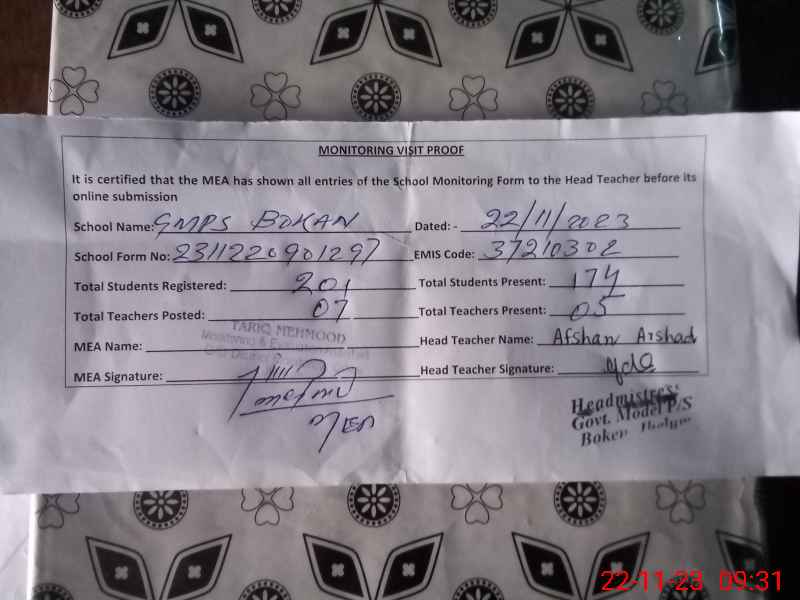 MONITORING VISIT PROOF
It is certified that the MEA has shown all entries of the School Monitoring Form to the Head Teacher before its
online submission
School Name: GMPS BOKAN Dated: - 22/11/2023
School Form No: 2311220901297 EMIS Code: 37210302
Total Students Registered: 201 Total Students Present: 174
Total Teachers Posted: 07 Total Teachers Present: 05
TARIQ MEHMOOD
Monitoring &
MEA Name: Head Teacher Name: Afshan Arshad
MEA Signature: Head Teacher Signature:
MEA
Headmistress
Govt. Model P/S
Boken
22-11-23 09:31